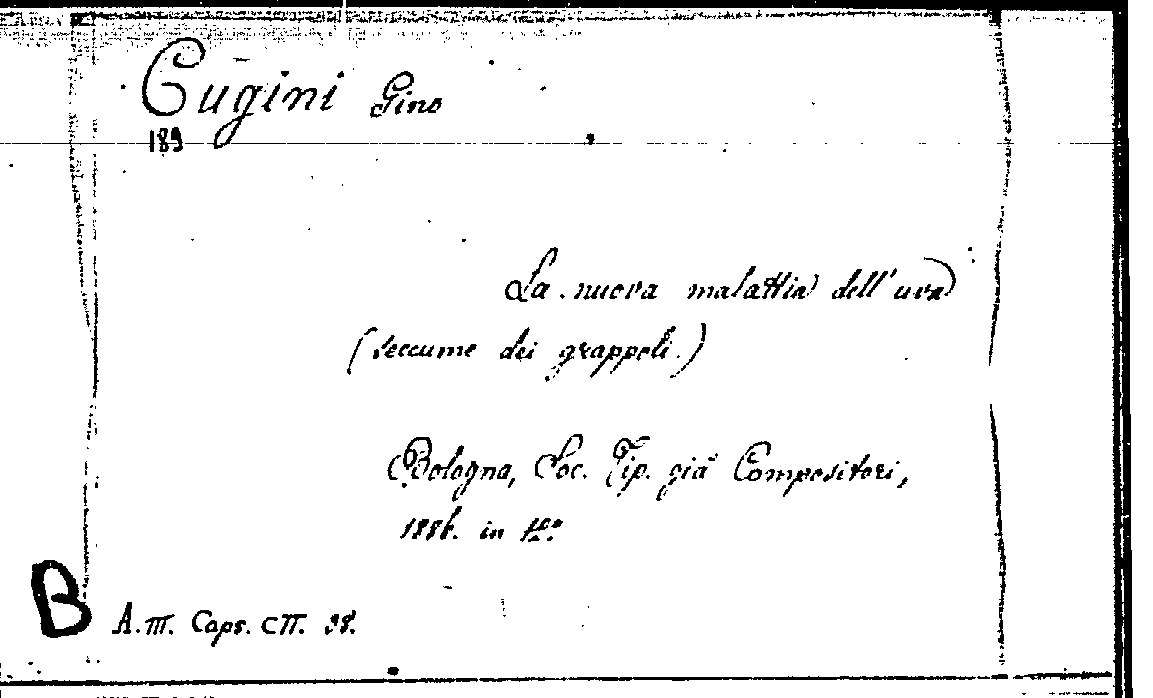 Cugini Gino
189
La nuova malattia dell'uva
(seccume dei grappoli.)
Bologna, Soc. Tip. già Compositori,
1886. in
B A. III. Caps. CII. 38.